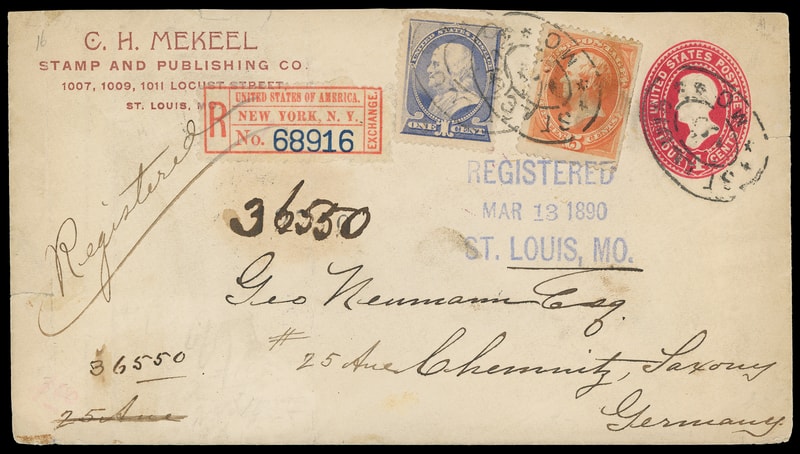 16
C. H. MEKEEL
STAMP AND PUBLISHING CO.
1007, 1009, 1011 LOCUST STREET
ST. LOUIS, M
R
UNITED STATES OF AMERICA.
NEW YORK, N. Y.
No. 68916
EXCHANGE.
ONE CENT
CENTS
UNITED STATES POSTAGE
CENTS
ST. LOUIS MO.
Registered
36550
REGISTERED
MAR 13 1890
ST. LOUIS, MO.
Geo Neumann Esq.
# 25 Aue Chemnitz, Saxony
Germany
36550
25 Aue